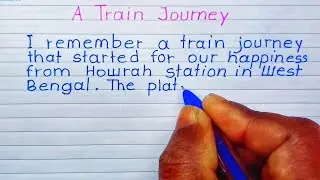 A Train Journey
I remember a train journey
that started for our happiness
from Howrah station in West
Bengal. The plat